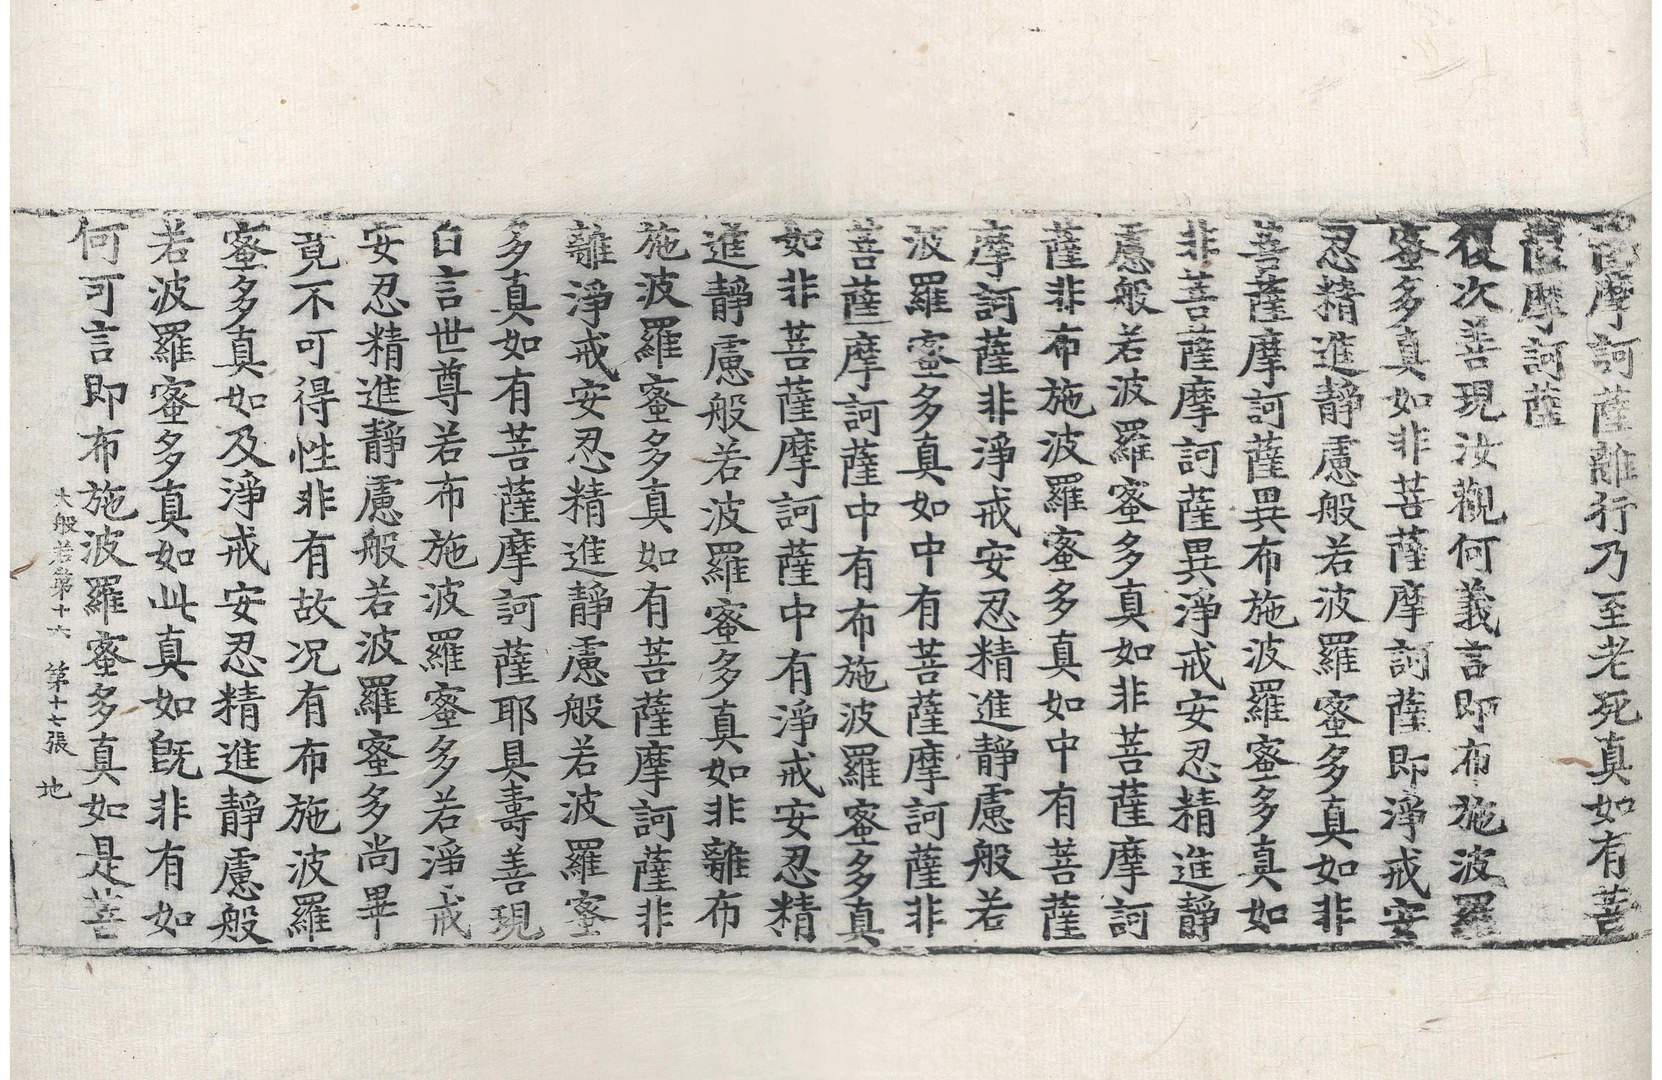 薩摩訶薩離行乃至老死真如有菩
薩摩訶薩
復次善現汝觀何義言即布施波羅
蜜多真如非菩薩摩訶薩即淨戒安
忍精進靜慮般若波羅蜜多真如非
菩薩摩訶薩異布施波羅蜜多真如
非菩薩摩訶薩異淨戒安忍精進靜
慮般若波羅蜜多真如非菩薩摩訶
薩非布施波羅蜜多真如中有菩薩
摩訶薩非淨戒安忍精進靜慮般若
波羅蜜多真如中有菩薩摩訶薩非
菩薩摩訶薩中有布施波羅蜜多真
如非菩薩摩訶薩中有淨戒安忍精
進靜慮般若波羅蜜多真如非離布
施波羅蜜多真如有菩薩摩訶薩非
離淨戒安忍精進靜慮般若波羅蜜
多真如有菩薩摩訶薩耶具壽善現
白言世尊若布施波羅蜜多若淨戒
安忍精進靜慮般若波羅蜜多尚畢
竟不可得性非有故况有布施波羅
蜜多真如及淨戒安忍精進靜慮般
若波羅蜜多真如此真如既非有如
何可言即布施波羅蜜多真如是菩
大般若第十六 第十七張 地